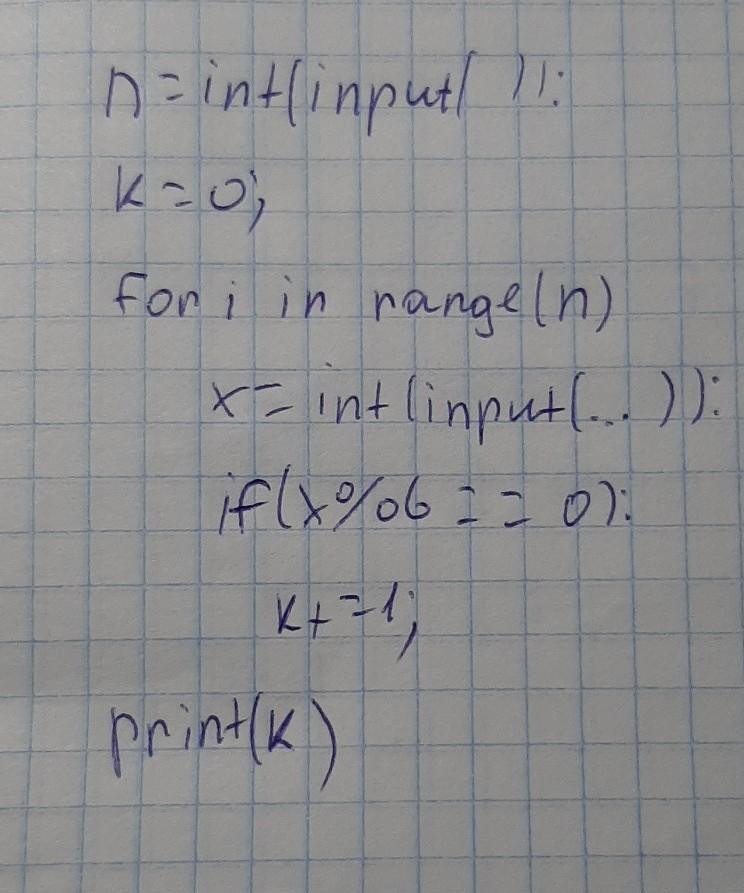 n=int(input( )):
k=0;
for i in range(n)
x=int(input(...)):
if(x%6==0):
k+=1;
print(k)